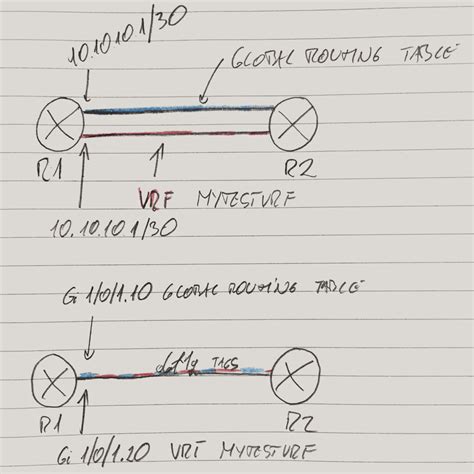 10.10.10.1/30
GLOBAL ROUTING TABLE
R1
R2
VRF MYTESTVRF
10.10.10.1/30
Gi 1/0/1.10 GLOBAL ROUTING TABLE
dot1q TAGS
R1
R2
Gi 1/0/1.20 VRF MYTESTVRF